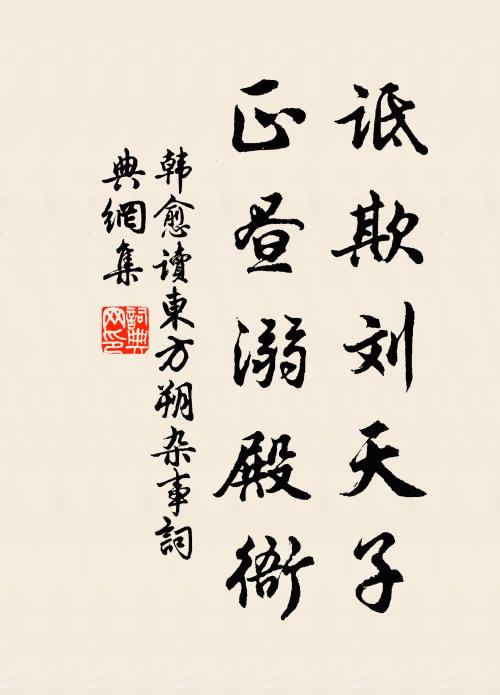 诋欺刘天子
正昼溺殿衙
韩愈读東方朔杂事詞
典網集
詞典
网印